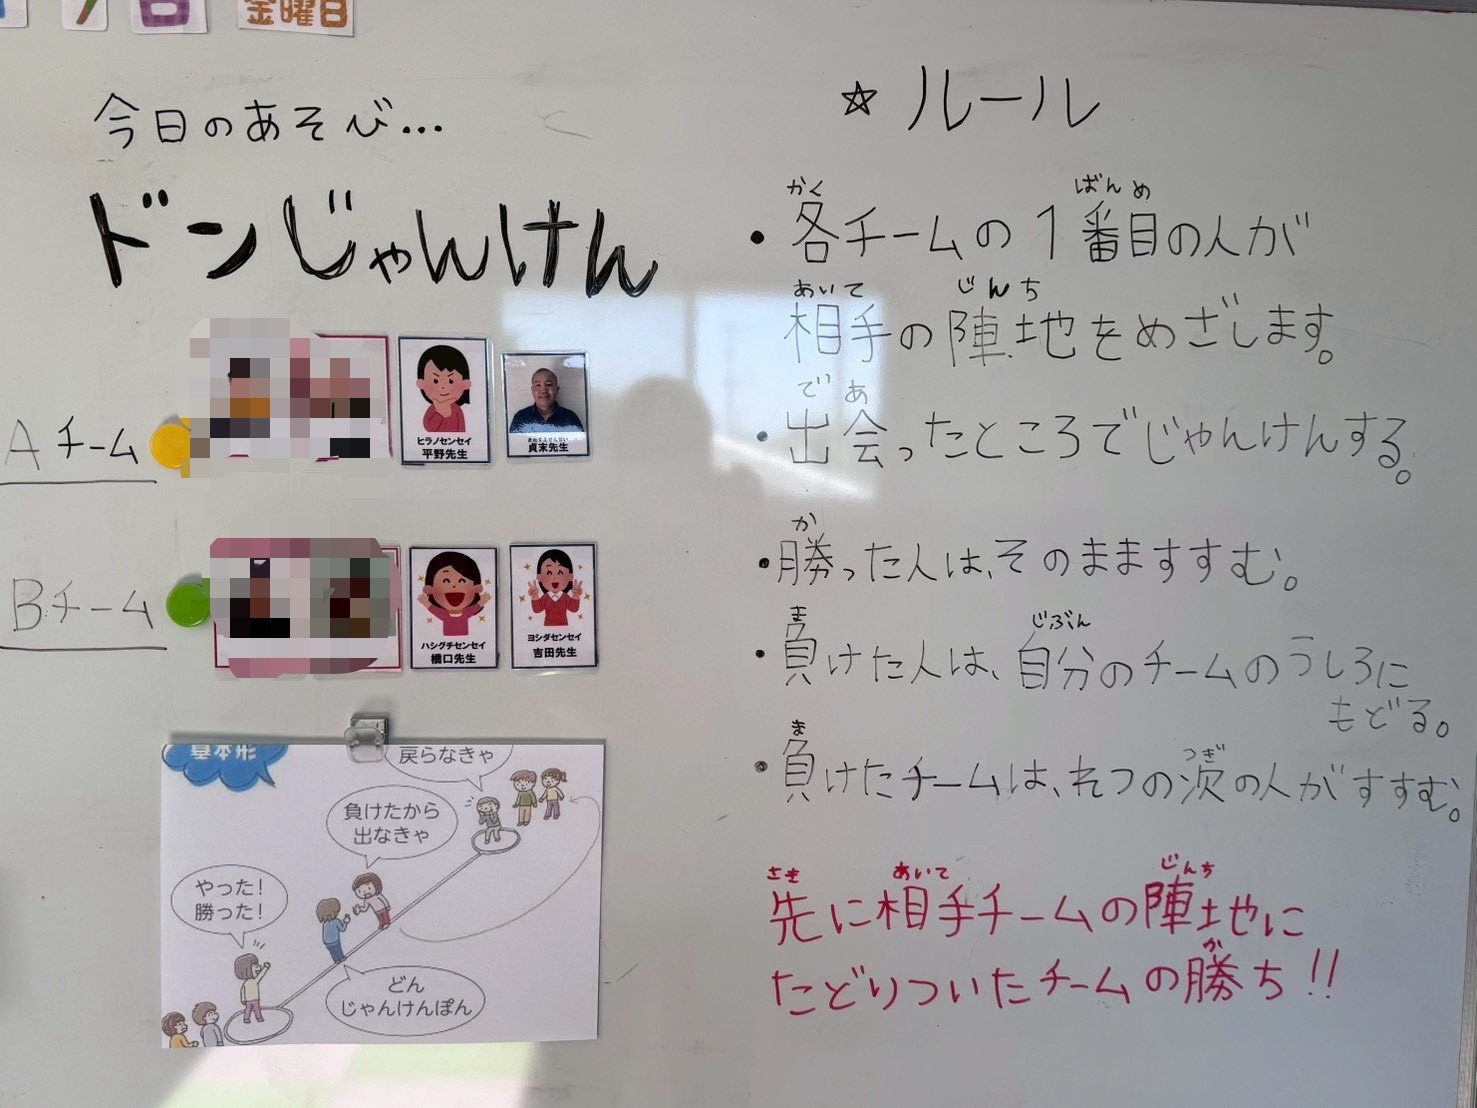 日
金曜日
今日のあそび…
ドンじゃんけん
Aチーム
ヒラノセンセイ
平野先生
貞末先生
Bチーム
ハシグチセンセイ
橋口先生
ヨシダセンセイ
吉田先生
基本形
戻らなきゃ
負けたから
出なきゃ
やった!
勝った!
どん
じゃんけんぽん
☆ ルール
かく ばんめ
・各チームの1番目の人が
あいて じんち
相手の陣地をめざします。
で あ
・出会ったところでじゃんけんする。
か
・勝った人は、そのまますすむ。
ま じぶん
・負けた人は、自分のチームのうしろに
もどる。
ま つぎ
・負けたチームは、れつの次の人がすすむ。
さき あいて じんち
先に相手チームの陣地に
か
たどりついたチームの勝ち!!